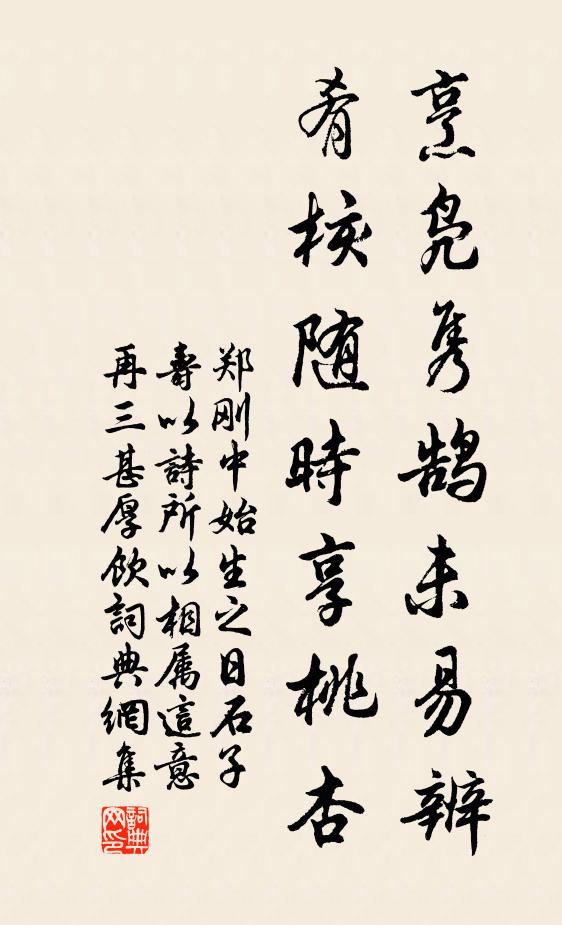 烹凫隽鹄未易辨
肴核随時享桃杏
郑刚中始生之日石子
壽以詩所以相属這意
再三甚厚飲詞典網集
詞典
网印